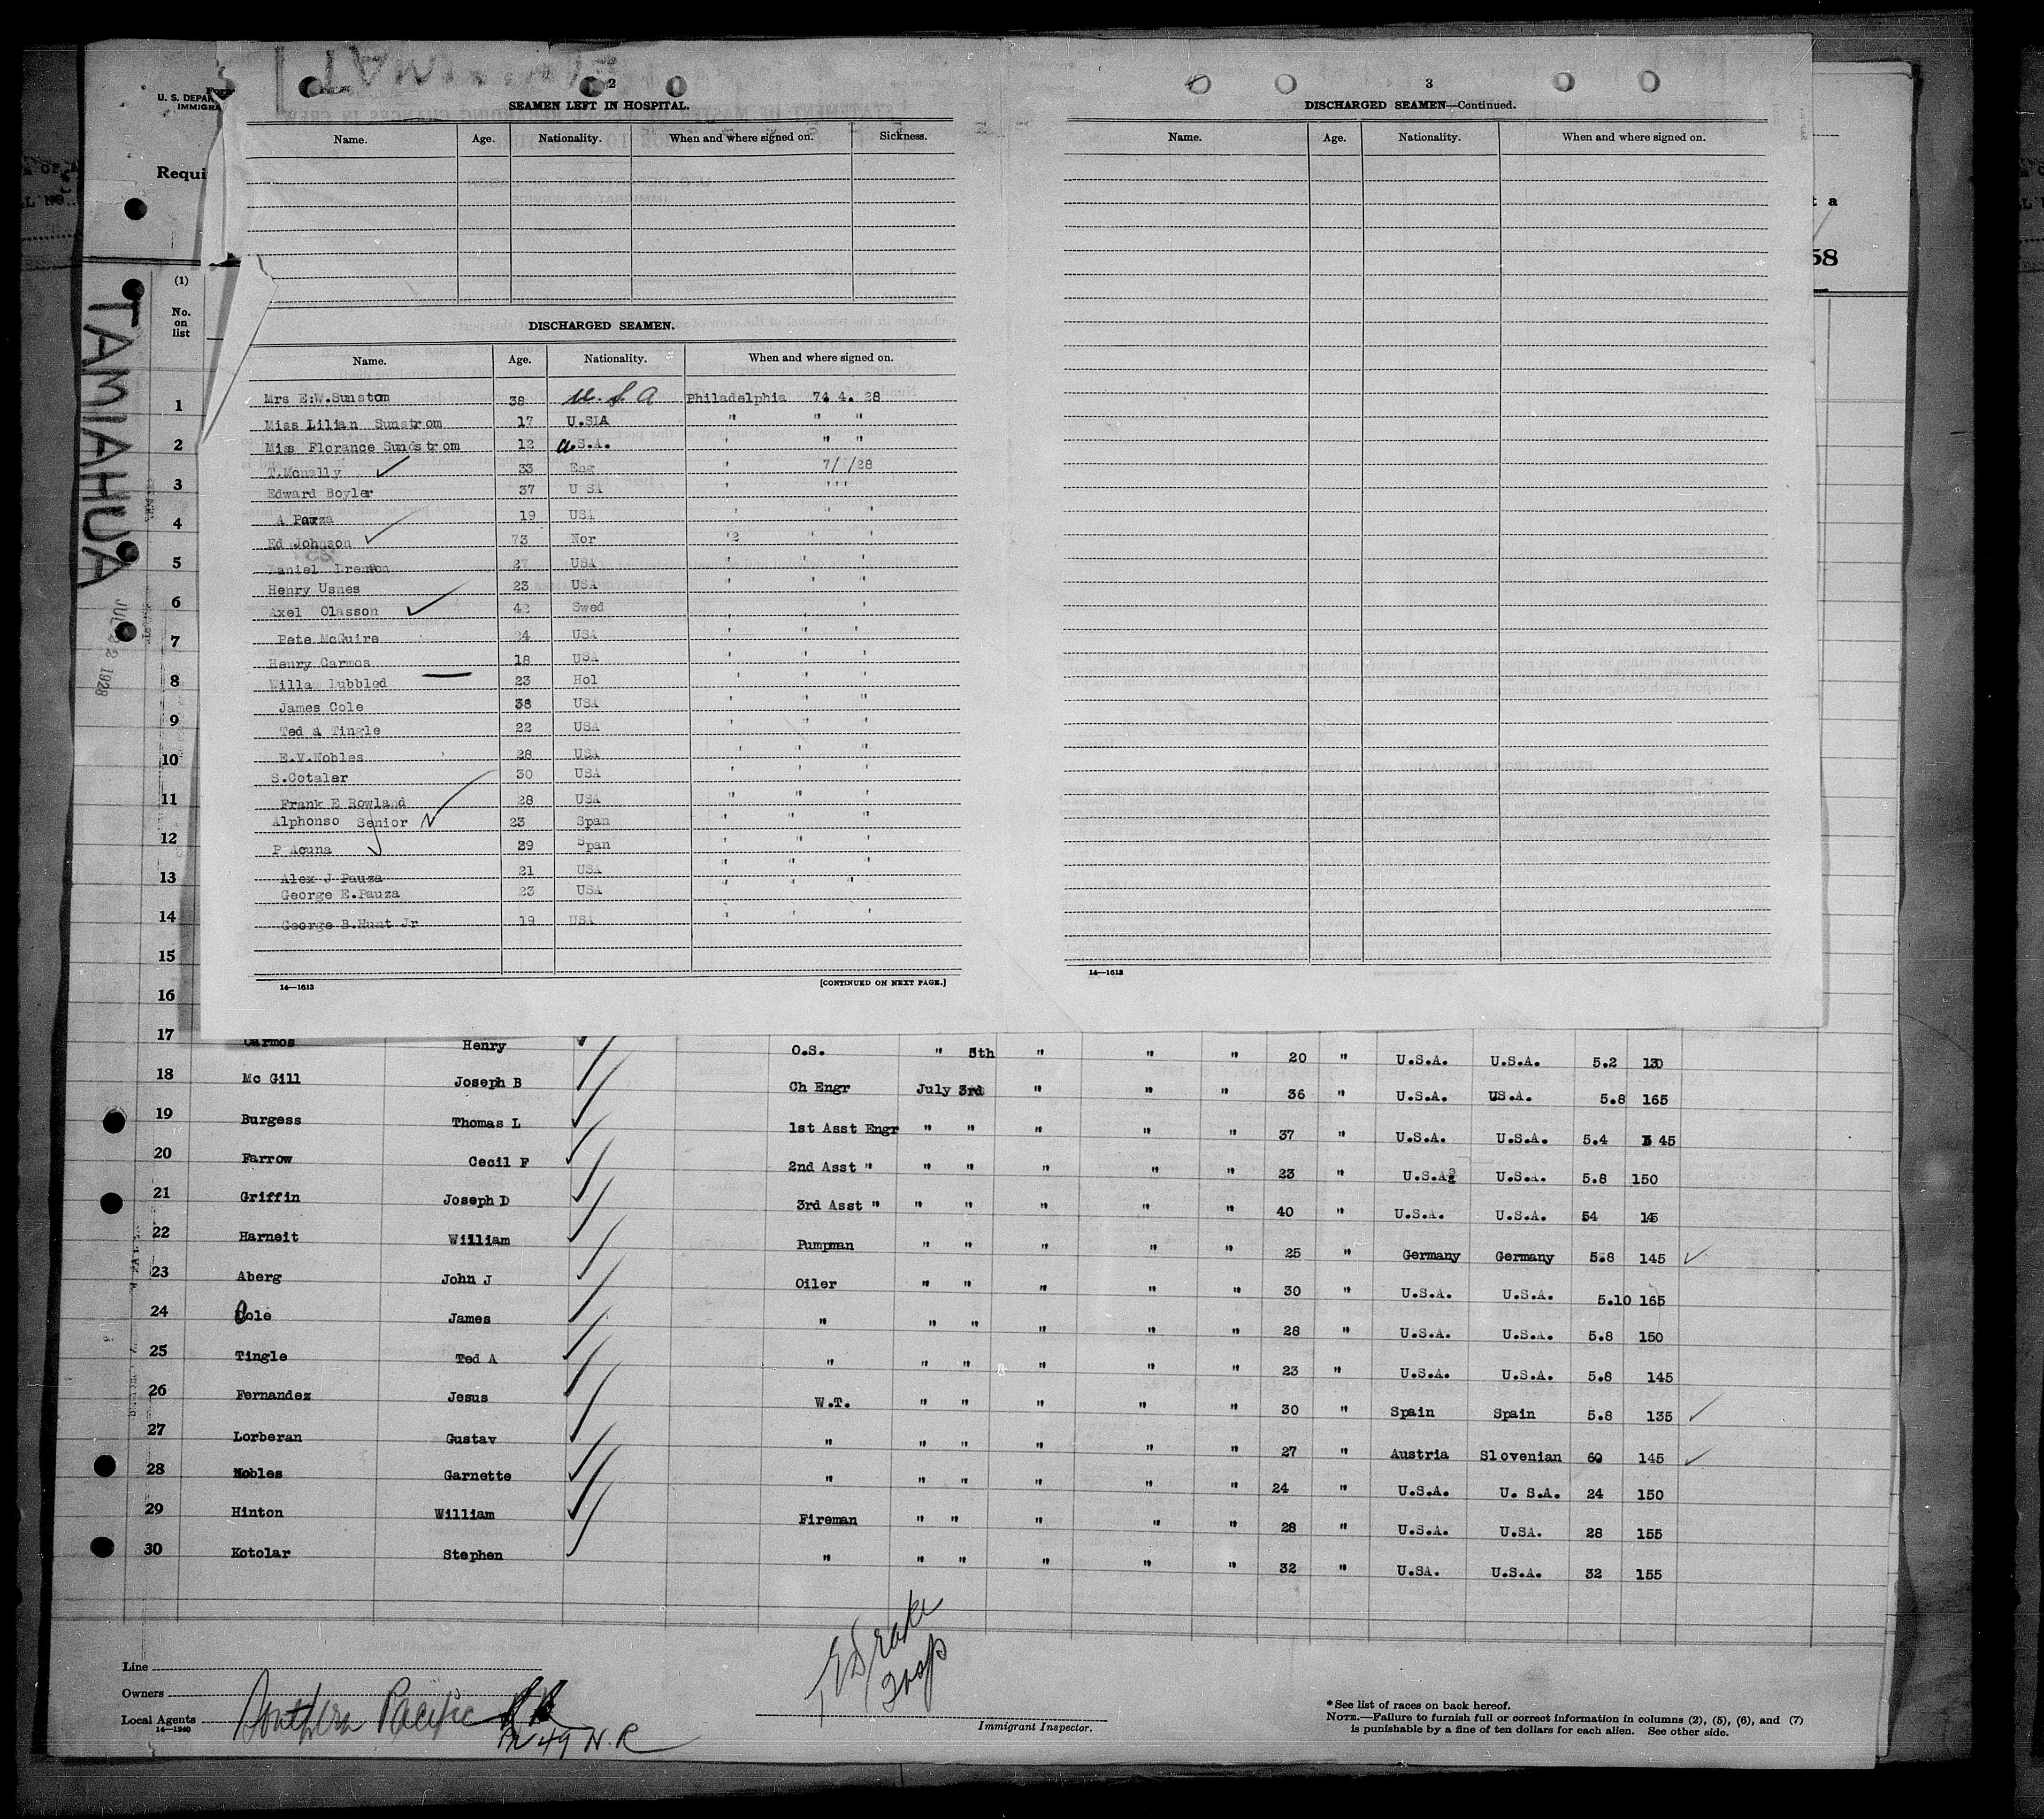 U. S. DEPAR
IMMIGRA
Requi
TAMIAHUA
JUL 22 1928
(1)
No.
on
list
2
SEAMEN LEFT IN HOSPITAL.
Name. Age. Nationality. When and where signed on. Sickness.
DISCHARGED SEAMEN.
Name. Age. Nationality. When and where signed on.
Mrs E:W.Sunstom 38 U.S.A Philadelphia 74. 4. 28
Miss Lilian Sunstrom 17 U.SIA " " "
Miss Florance Sundstrom 12 U.S.A. ' " "
T.Mcnally 33 Eng ' 7/ /28
Edward Boyler 37 U SA ' ' ' '
A Pauza 19 USA ' ' '
Ed Johnson 73 Nor '2 ' '
Daniel Irenton 27 USA ' ' '
Henry Usnes 23 USA ' ' '
Axel Olasson 42 Swed ' ' '
Pete McGuire 24 USA ' ' '
Henry Carmos 18 USA ' ' '
Willam Lubbled 23 Hol ' ' '
James Cole 38 USA ' ' '
Ted a Tingle 22 USA ' ' '
E.V.Nobles 28 USA ' ' '
S.Cotaler 30 USA ' ' '
Frank E Rowland 28 USA " " "
Alphonso Senior 23 Span ' ' '
P Acuna 29 Span ' " '
Alex J Pauza 21 USA ' ' '
George E.Pauza 23 USA ' ' '
George B.Hunt Jr 19 USA ' ' '
14—1613 [CONTINUED ON NEXT PAGE.]
3
DISCHARGED SEAMEN—Continued.
Name. Age. Nationality. When and where signed on.
14—1613
t a
58
1
2
3
4
5
6
7
8
9
10
11
12
13
14
15
16
17 Carmos Henry O.S. " 5th " " " 20 " U.S.A. U.S.A. 5.2 130
18 Mc Gill Joseph B Ch Engr July 3rd " " " 36 " U.S.A. US.A. 5.8 165
19 Burgess Thomas L 1st Asst Engr " " " " " 37 " U.S.A. U.S.A. 5.4 145
20 Farrow Cecil F 2nd Asst " " " " " " 23 " U.S.A. U.S.A. 5.8 150
21 Griffin Joseph D 3rd Asst " " " " " " 40 " U.S.A. U.S.A. 54 145
22 Harneit William Pumpman " " " " " 25 " Germany Germany 5.8 145
23 Aberg John J Oiler " " " " " 30 " U.S.A. U.S.A. 5.10 165
24 Cole James " " " " " " 28 " U.S.A. U.S.A. 5.8 150
25 Tingle Ted A " " " " " " 23 " U.S.A. U.S.A. 5.8 145
26 Fernandez Jesus W.T. " " " " " 30 " Spain Spain 5.8 135
27 Lorberan Gustav " " " " " " 27 " Austria Slovenian 60 145
28 Nobles Garnette " " " " " " 24 " U.S.A. U. S.A. 24 150
29 Hinton William Fireman " " " " " 28 " U.S.A. U.SA. 28 155
30 Kotolar Stephen " " " " " " 32 " U.SA. U.S.A. 32 155
Line
Owners
Local Agents Southern Pacific RR
14—1240
Pr 49 N.R
E Drake
Insp
Immigrant Inspector.
*See list of races on back hereof.
NOTE.—Failure to furnish full or correct information in columns (2), (5), (6), and (7)
is punishable by a fine of ten dollars for each alien. See other side.